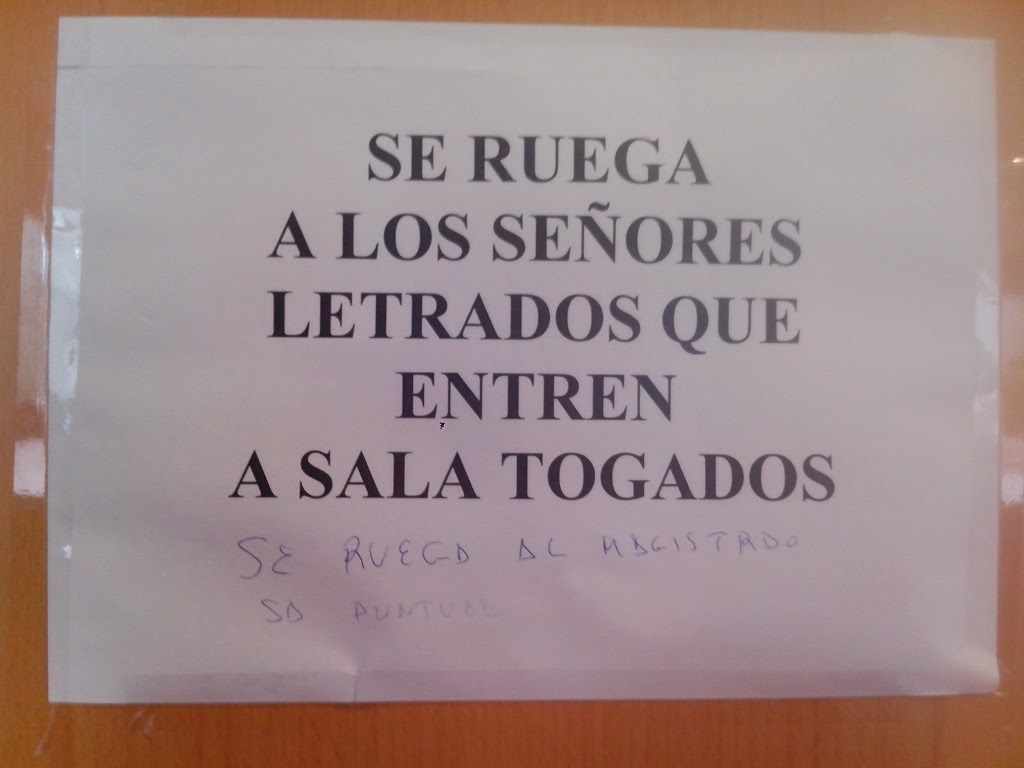 SE RUEGA
A LOS SEÑORES
LETRADOS QUE
ENTREN
A SALA TOGADOS
SE RUEGA AL MAGISTRADO
SA PUNTUAL